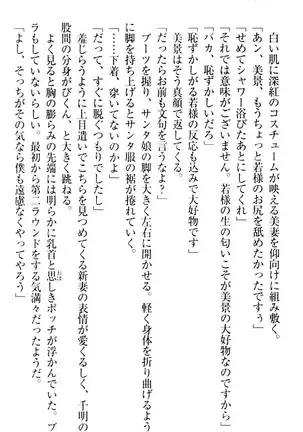 白い肌に深紅のコスチュームが映える美妻を仰向けに組み敷く。
「あん、美景、もうちょっと若様のお尻を舐めたかったですぅ」
「せめてシャワー浴びたあとにしてくれ」
「それでは意味がございません。若様の生の匂いこそが美景の大好物なのですから」
「バカ、恥ずかしいだろ」
「恥ずかしがる若様の反応も込みで大好物です」
美景はそう真顔で返してくる。
「だったらお前も文句ないな？」
ブーツを握り、サンタ娘の脚を大きく左右に開かせる。軽く身体を折り曲げるよう
に脚を持ち上げるとサンタ服の裾が捲れていく。
「……下着、穿いてないのかよ」
「だって、すぐに脱ぐつもりでしたし」
羞じらうように上目遣いでこちらを見つめてくる新妻の表情が愛くるしく、千明の
股間の分身がびくん、と大きく跳ねる。
よく見ると胸の膨らみの先端には明らかに乳首と思しきポッチが浮かんでいた。ブ
ラもしていないらしい。最初から第二ラウンドをする気満々だったようだ。
「よし、そっちがその気なら僕も遠慮なくやってやろう」